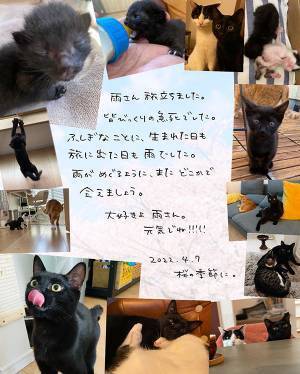 雨さん 旅立ちました。
皆びっくりの急死でした。
ふしぎなことに、生まれた日も
旅に出た日も 雨でした。
雨がめぐるように、またどこかで
会えましょう。
大好きよ 雨さん。
元気でね!!!!!
2022.4.7
桜の季節に。